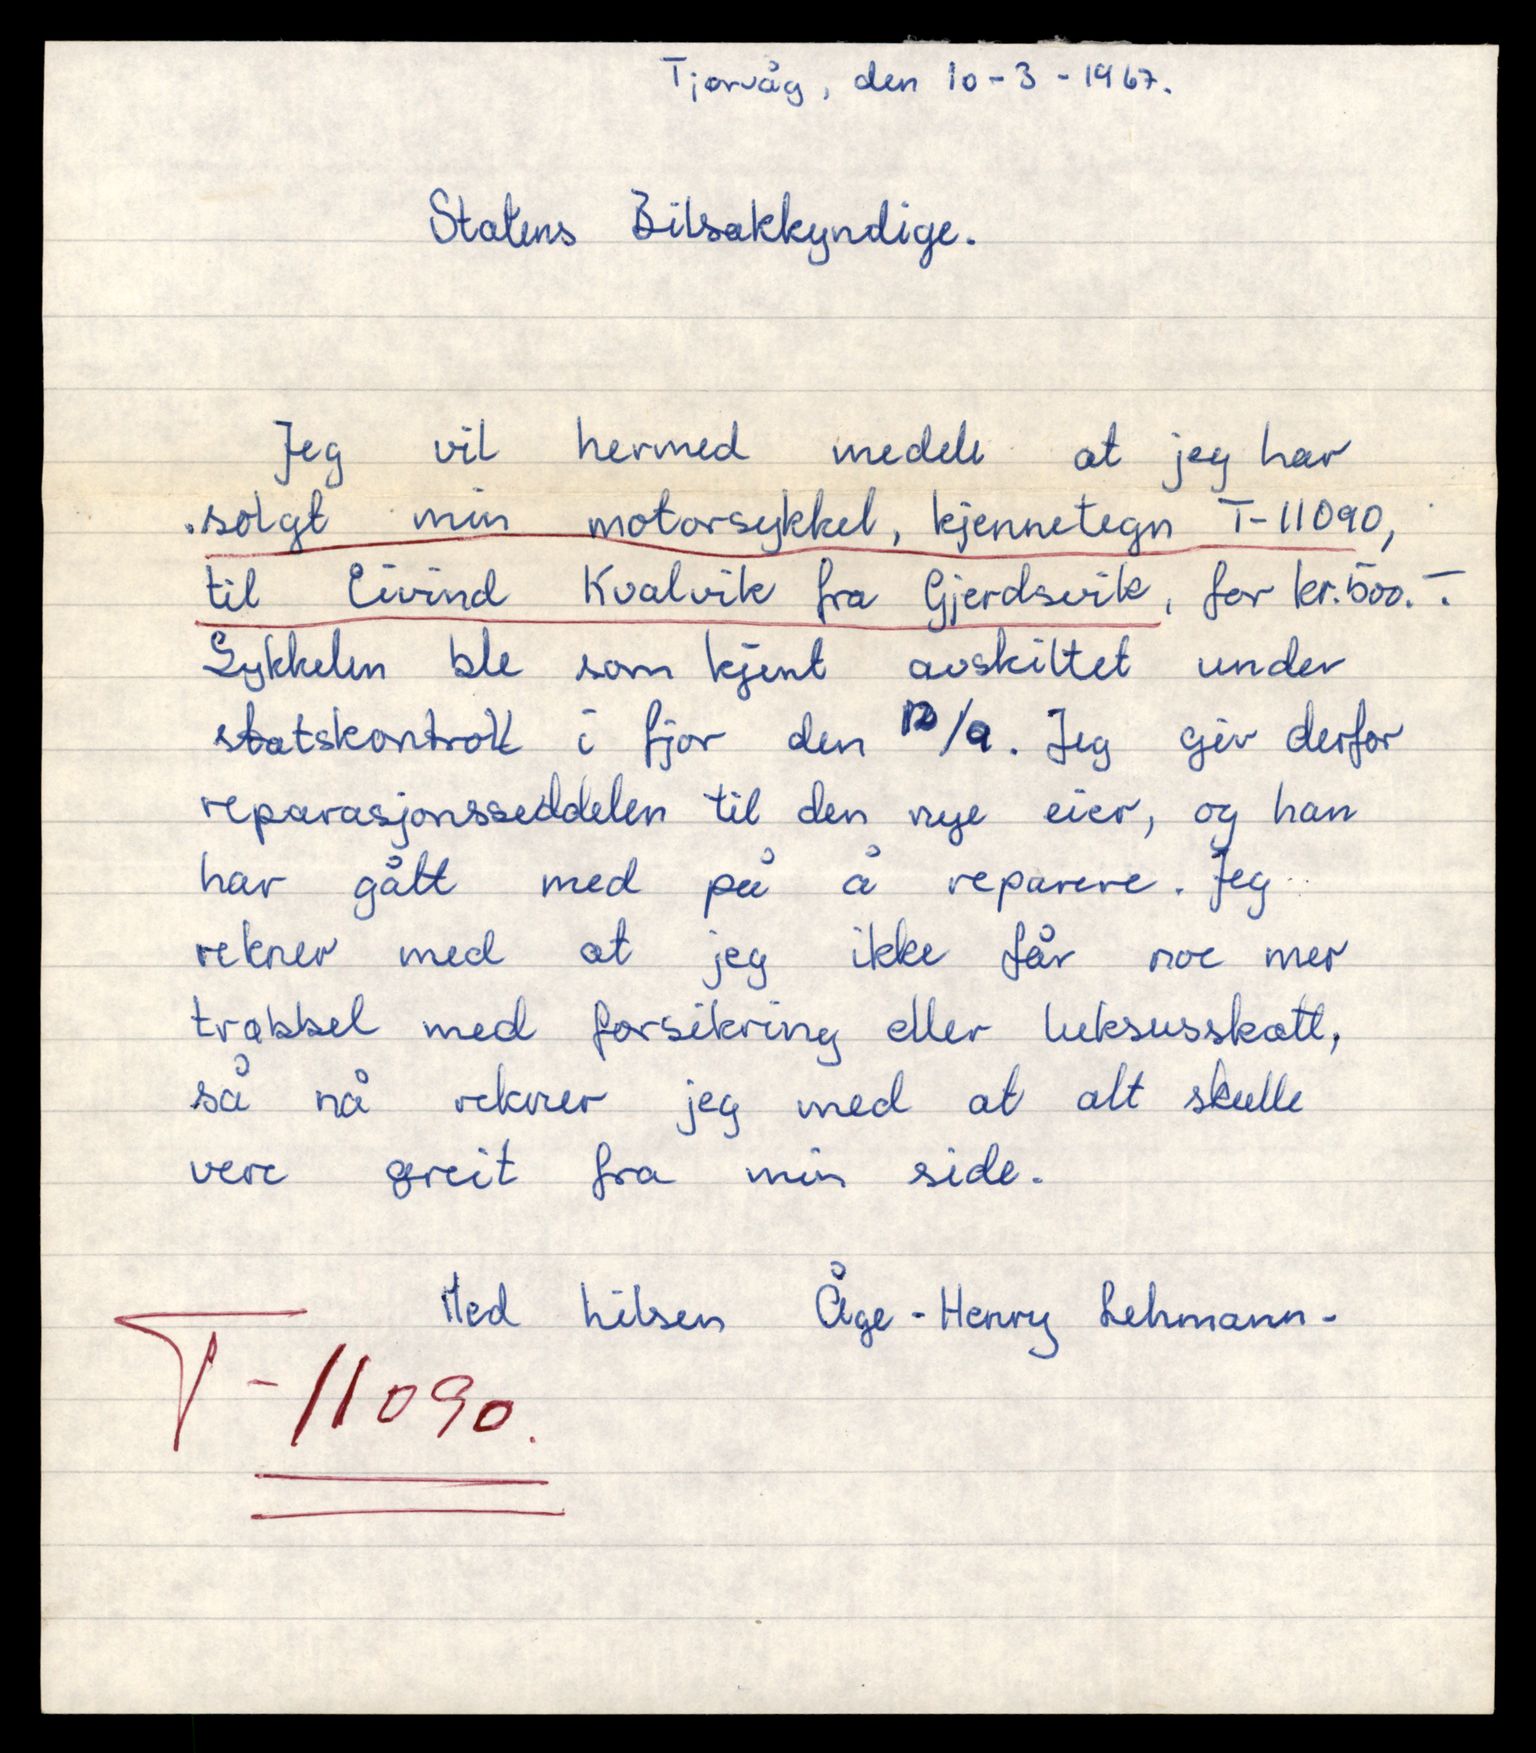 Tjørvåg, den 10-3-1967.
Statens Bilsakkyndige.
Jeg vil hermed medele at jeg har
solgt min motorsykkel, kjennetegn T-11090,
til Eivind Kvalvik fra Gjerdsvik, for kr.500.-.
Sykkelen ble som kjent avskiltet under
statskontroll i fjor den /9. Jeg gir derfor
reparasjonsseddelen til den nye eier, og han
har gått med på å reparere. Jeg
rekner med at jeg ikke får noe mer
trøbbel med forsikring eller luksusskatt,
så nå rekner jeg med at alt skulle
vere greit fra min side.
Med hilsen Åge-Henry Lehmann-
T-11090.